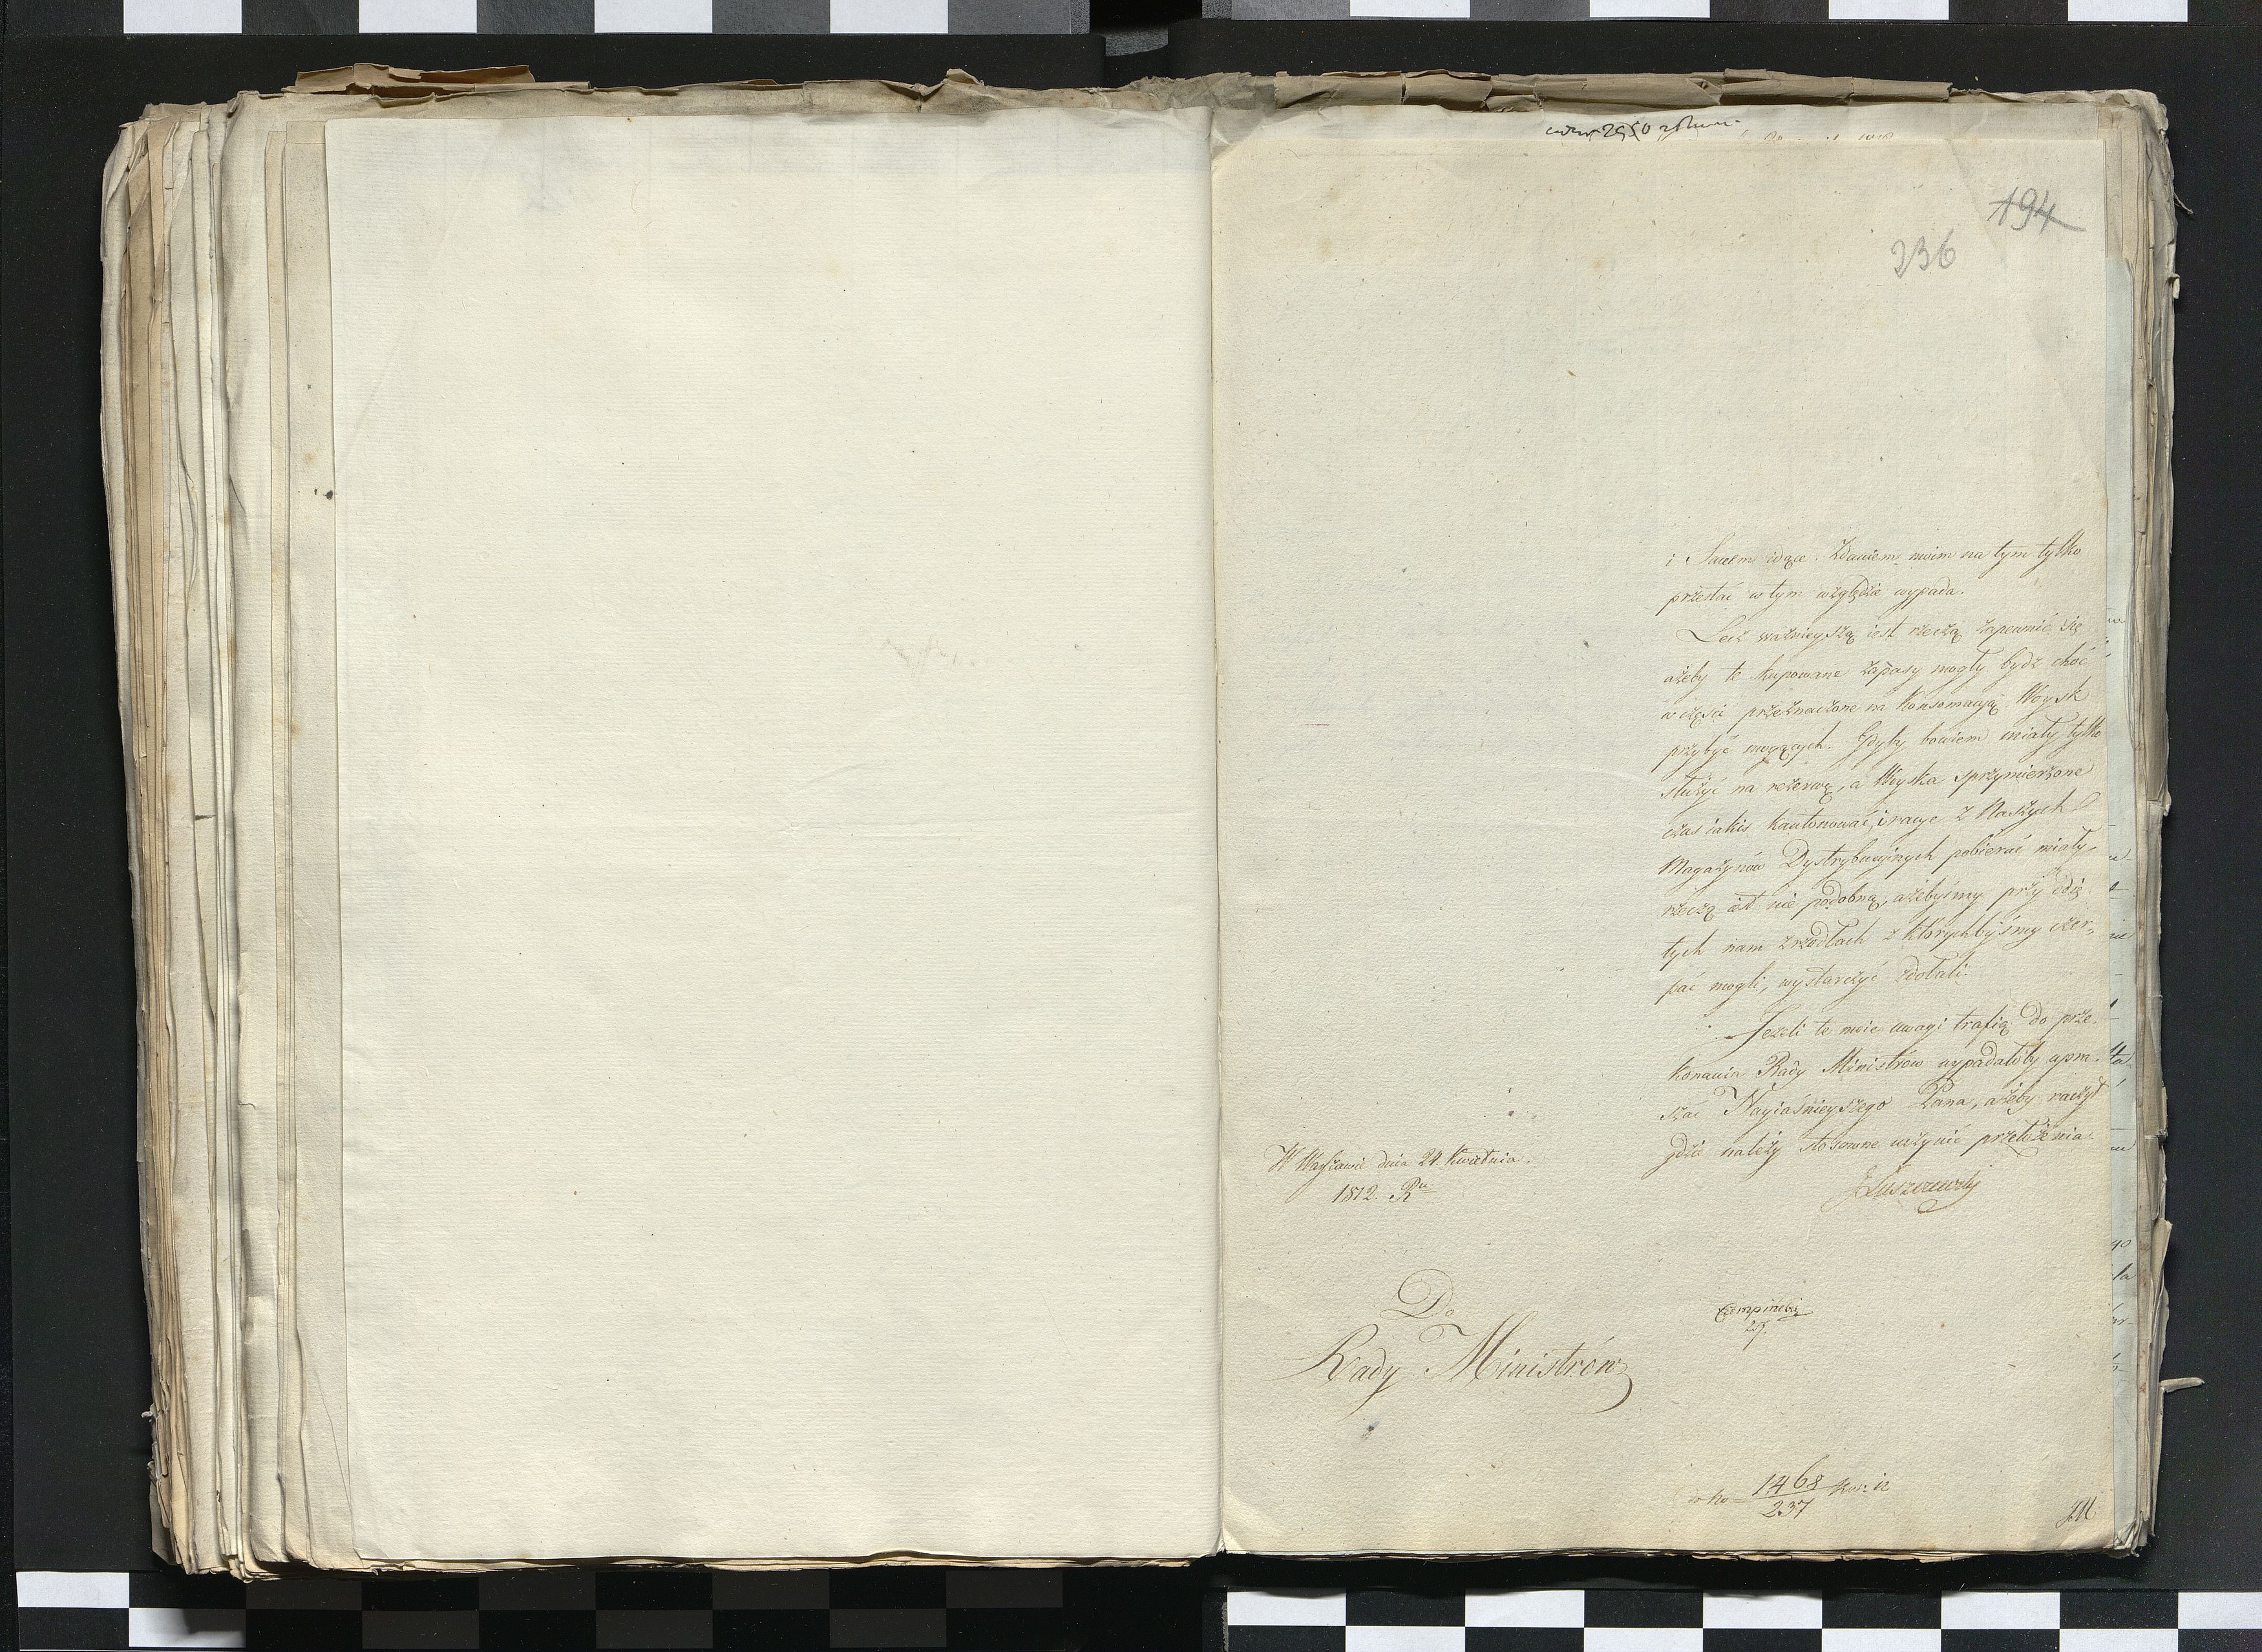 2950
194
236
i Sascem idące. Zdaniem moim na tym tylko
przestać w tym względzie wypada.
Lecz ważnieyszą iest rzeczą zapewnić się
ażeby te kupowane zapasy mogły bydź choć
w częsci przeznaczone na Konsomacyą Woysk
przybyć mogących. Gdyby bowiem miały tylko
służyć na rezerwę, a Woyska sprzymierzone
czas iakis kantonować, i racye z Naszych
Magazynów Dystrybucyjnych pobierać miały,
rzeczą iest nie podobną, ażebyśmy przy odię
tych nam zrzódłach z którychbyśmy czer„
pać mogli, wystarczyć zdołali.
Jeżeli te moie uwagi trafią do prze„
konania Rady Ministrów wypadałoby upra„
szać Nayiaśnieyszego Pana, ażeby raczył
gdzie należy stosowne uczynić przełożenia.
W Warszawie dnia 24 Kwietnia.
1812. Ru
JŁuszczewski
Do
Rady Ministrów
1468
237